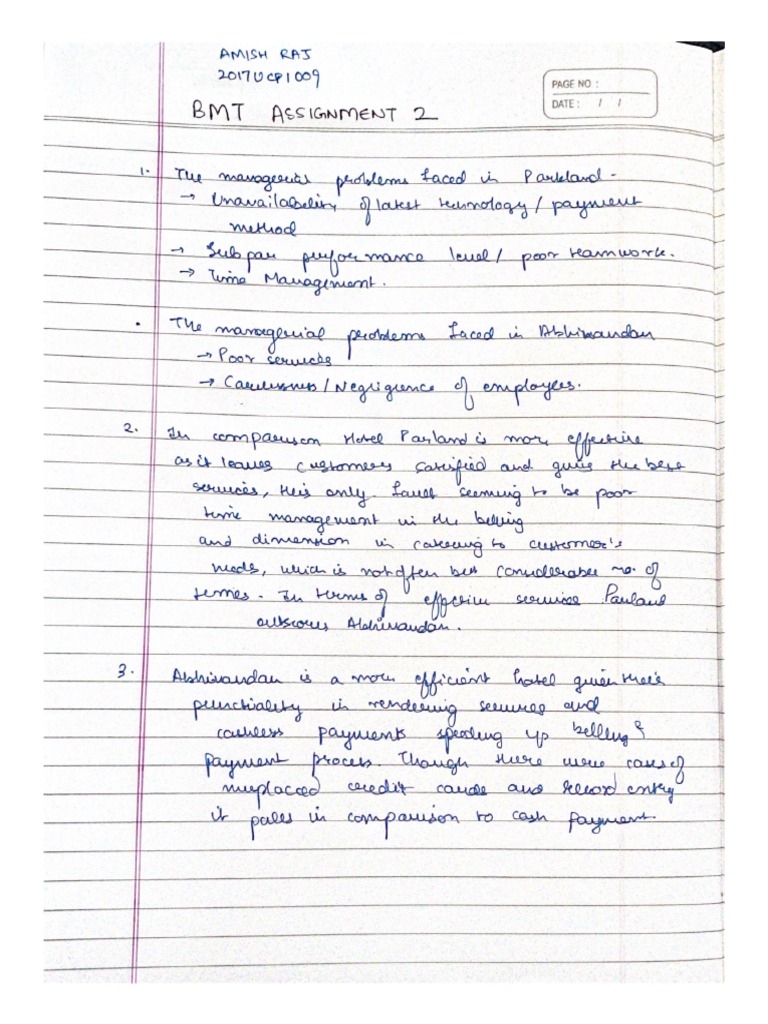 AMISH RAJ
2017UCP1009
PAGE NO :
DATE : / /
BMT ASSIGNMENT 2
1. The managerial problems faced in Parkland -
→ Unavailability of latest technology / payment
method
→ Subpar performance level / poor teamwork.
→ Time Management.
• The managerial problems faced in Abhinandan
→ Poor services
→ Carelessness / Negligience of employees.
2. In comparison Hotel Parland is more effective
as it leaves customers satisfied and gives the best
services, their only fault seeming to be poor
time management in the billing
and dimension in catering to customer's
needs, which is not often but considerable no. of
times. In terms of effective services Parland
outscores Abhinandan.
3. Abhinandan is a more efficient hotel given their
punctiality in rendering services and
cashless payments speeding up billing &
payment process. Though there were cases of
misplaced credit cards and record entry
it pales in comparison to cash payment.